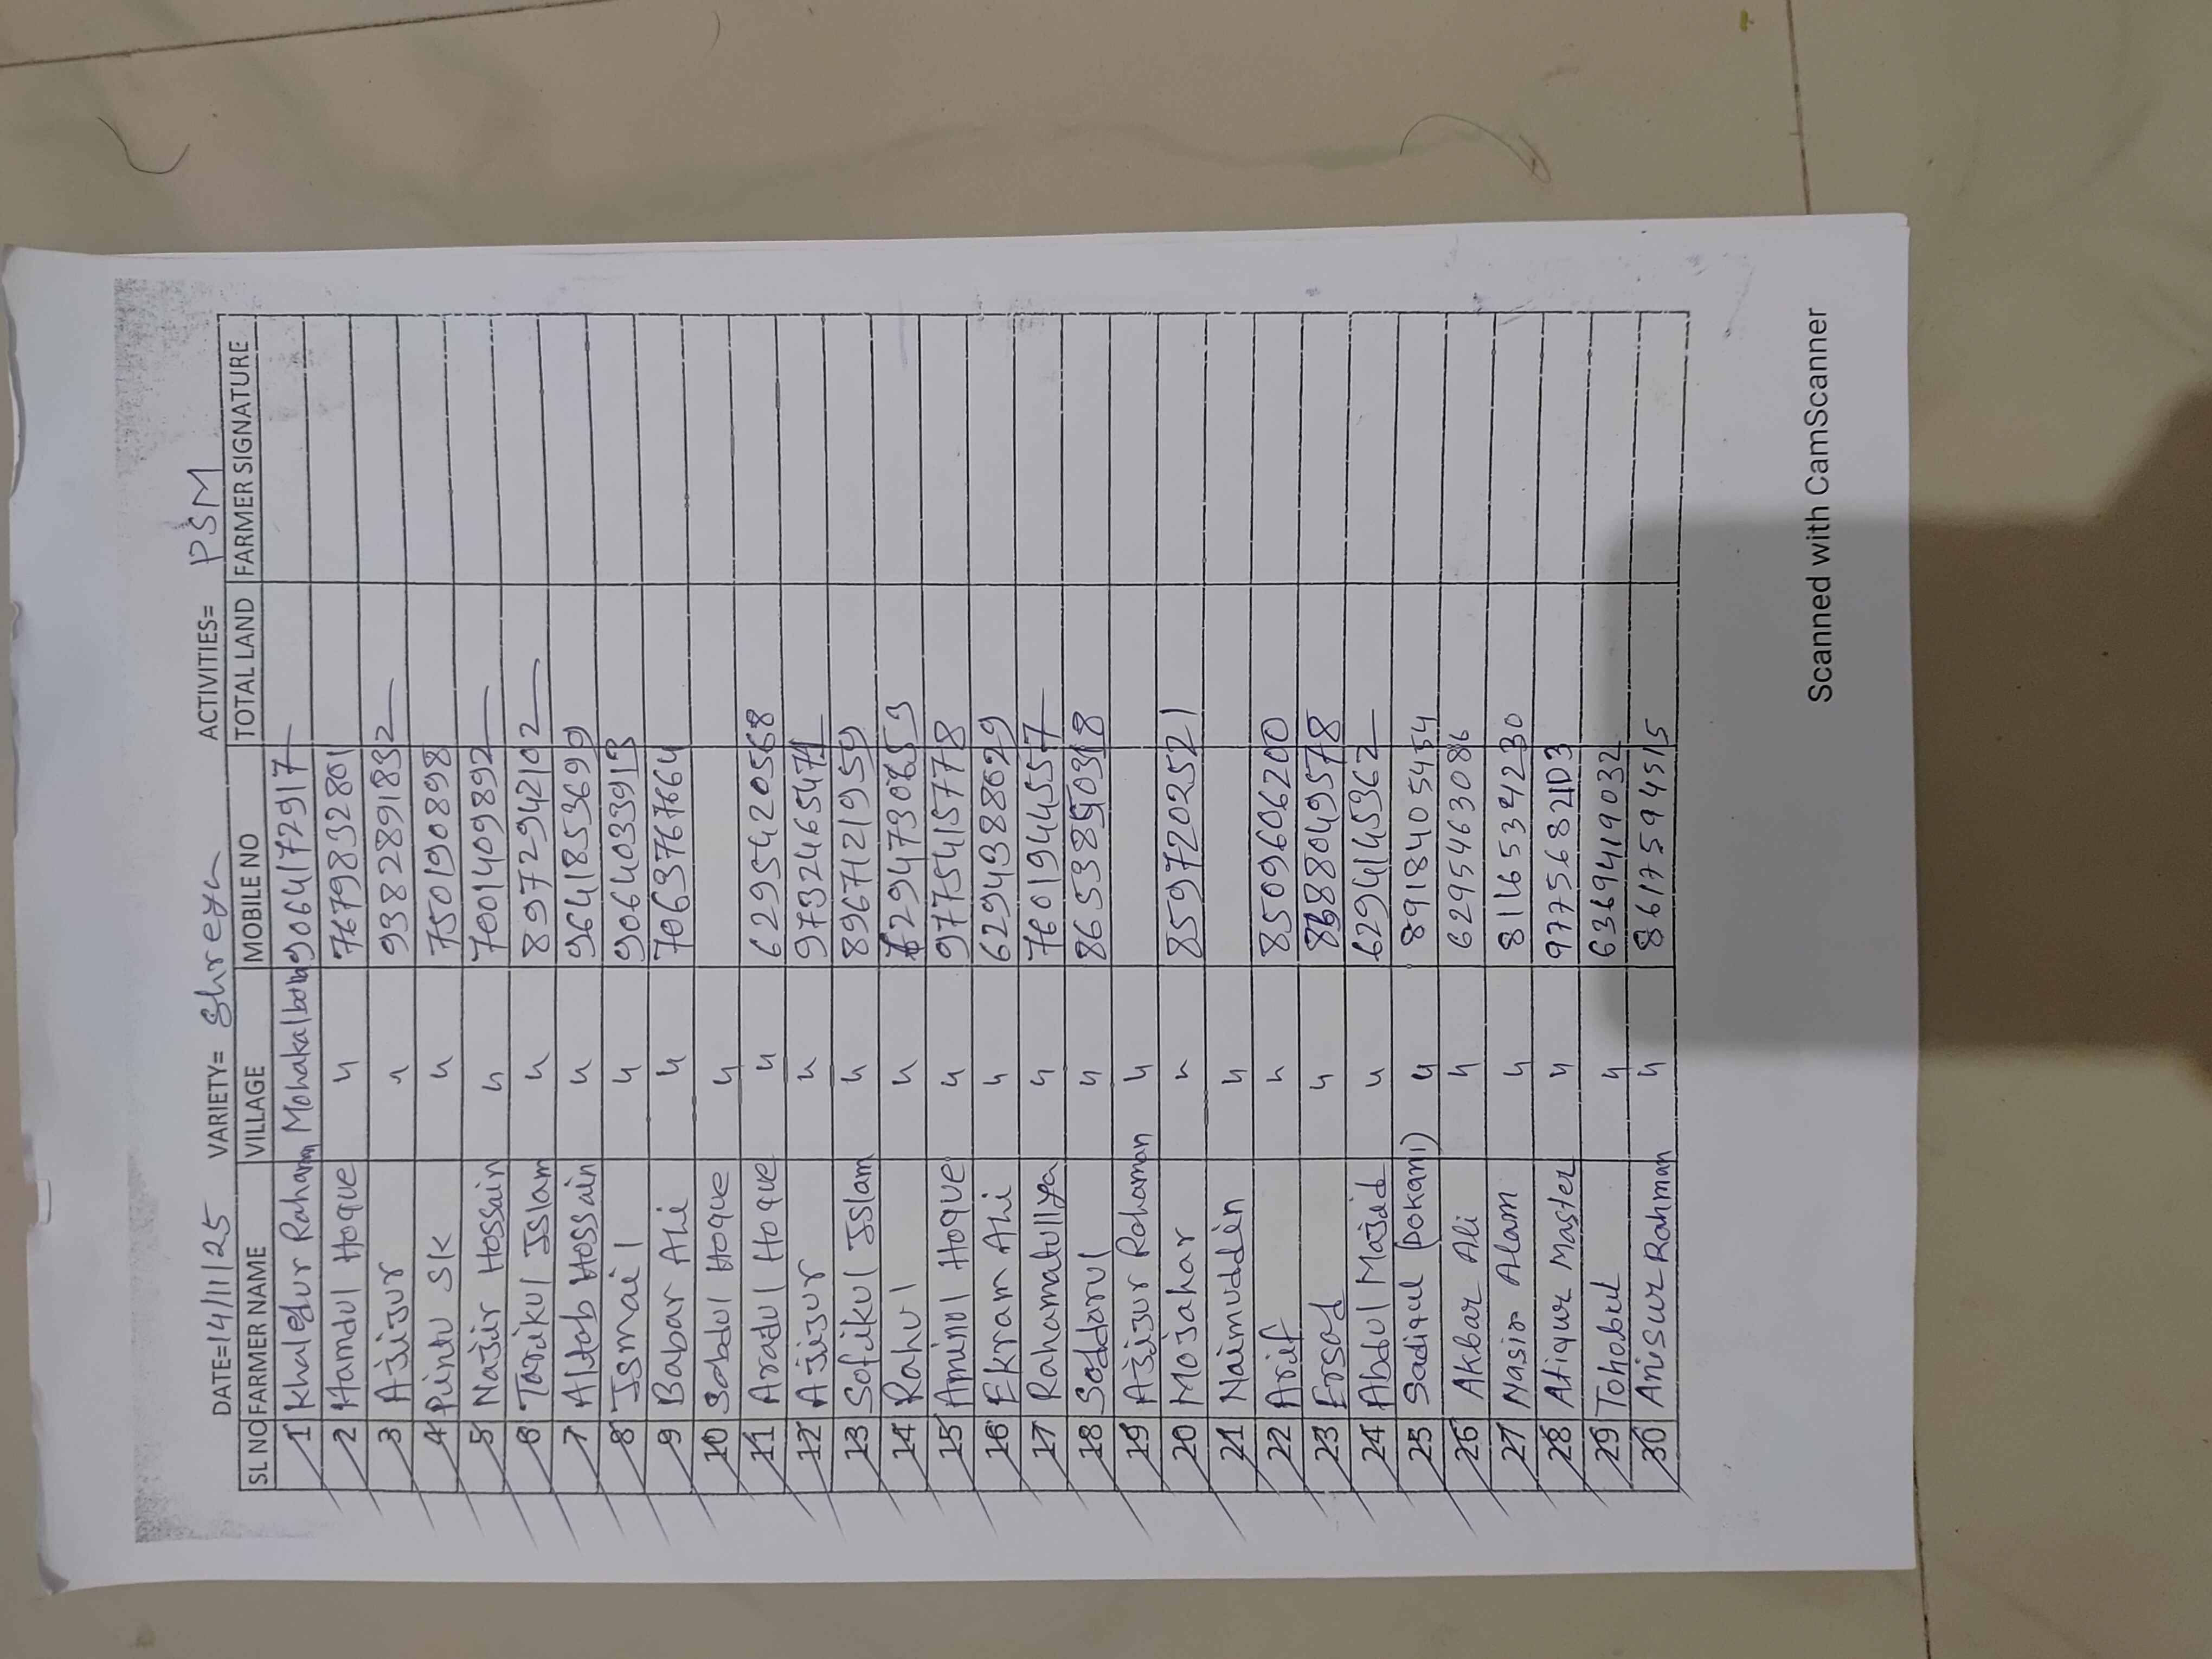 DATE=14/11/25 VARIETY= Shreya ACTIVITIES= PSM
SL NO FARMER NAME VILLAGE MOBILE NO TOTAL LAND FARMER SIGNATURE
1 Khalefur Rahaman Mohakalbona 9064172917
2 Hamdul Hoque " 7679832801
3 Azizur " 9382891832
4 Pintu SK " 750190898
5 Nazir Hossain " 7001409892
6 Tarikul Islam " 8972942102
7 Altab Hossain " 9641853699
8 Ismail " 9064033919
9 Babar Ali " 7063767664
10 Sabdul Hoque "
11 Aradul Hoque " 6295420568
12 Azizur " 9732465471
13 Sofikul Islam " 8967121959
14 Rahul "
15 Aminul Hoque " 9775415778
16 Ekram Ali " 6294388029
17 Rahamatullya " 7601944557
18 Saddarul "
19 Azizur Rahaman "
20 Mojahar " 8597202521
21 Naimuddin "
22 Arif " 8509606200
23 Ersad "
24 Abdul Majid " 6294145362
25 Sadiqul (Dokani) " 8918405454
26 Akbar Ali " 6295463086
27 Nasir Alam " 8116534230
28 Atiqur Master " 9775682103
29 Tohabul " 6369419032
30 Anisur Rahman " 8617594515
Scanned with CamScanner